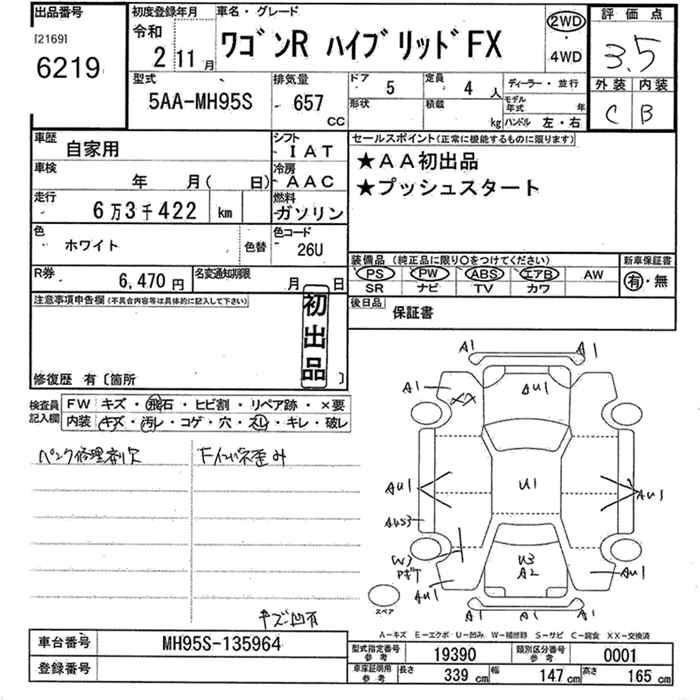 出品番号
[2169]
6219
初度登録年月
令和
2 11月
車名・グレード
ワゴンR ハイブリッドFX
2WD
・
4WD
評価点
3.5
外装 内装
C B
型式
5AA-MH95S
排気量
657
CC
ドア 5
定員 4 人
形状
積載 kg
ディーラー・並行
モデル年式 年
ハンドル 左・右
車歴 自家用
シフト IAT
車検 年 月( 日)
冷房 AAC
走行 6万3千422 km
燃料 ガソリン
色 ホワイト 色替
色コード 26U
R券 6,470円
名変通知期限 月 日
セールスポイント(正常に機能するものに限ります)
★AA初出品
★プッシュスタート
装備品 (純正品に限り〇をつけてください)
新車保証書
PS PW ABS エアB AW
SR ナビ TV カワ
有・無
後日品 保証書
注意事項申告欄(不具合内容等は具体的に記入して下さい)
初出品
修復歴 有〔箇所 〕
検査員記入欄
FW キズ・飛石・ヒビ割・リペア跡・×要
内装 キズ・汚レ・コゲ・穴・スレ・キレ・破レ
パンク修理剤欠
キズ凹有
A1 A1
A1 XX AU1
AU1 U1 AU1
AUS3
W3
U3
A2
AU1 AU1
A1 A1 A1
スペア
A-キズ E-エクボ U-凹ミ W-補修跡 S-サビ C-腐食 XX-交換済
車台番号 MH95S-135964
登録番号
型式指定番号 参考 19390
類別区分番号 参考 0001
車庫証明用 参考 長さ 339 cm 幅 147 cm 高さ 165 cm